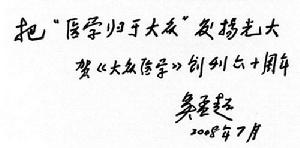 把“医学归于大众”发揚光大
贺《大众医学》创刊六十周年
吴孟超
2008年7月